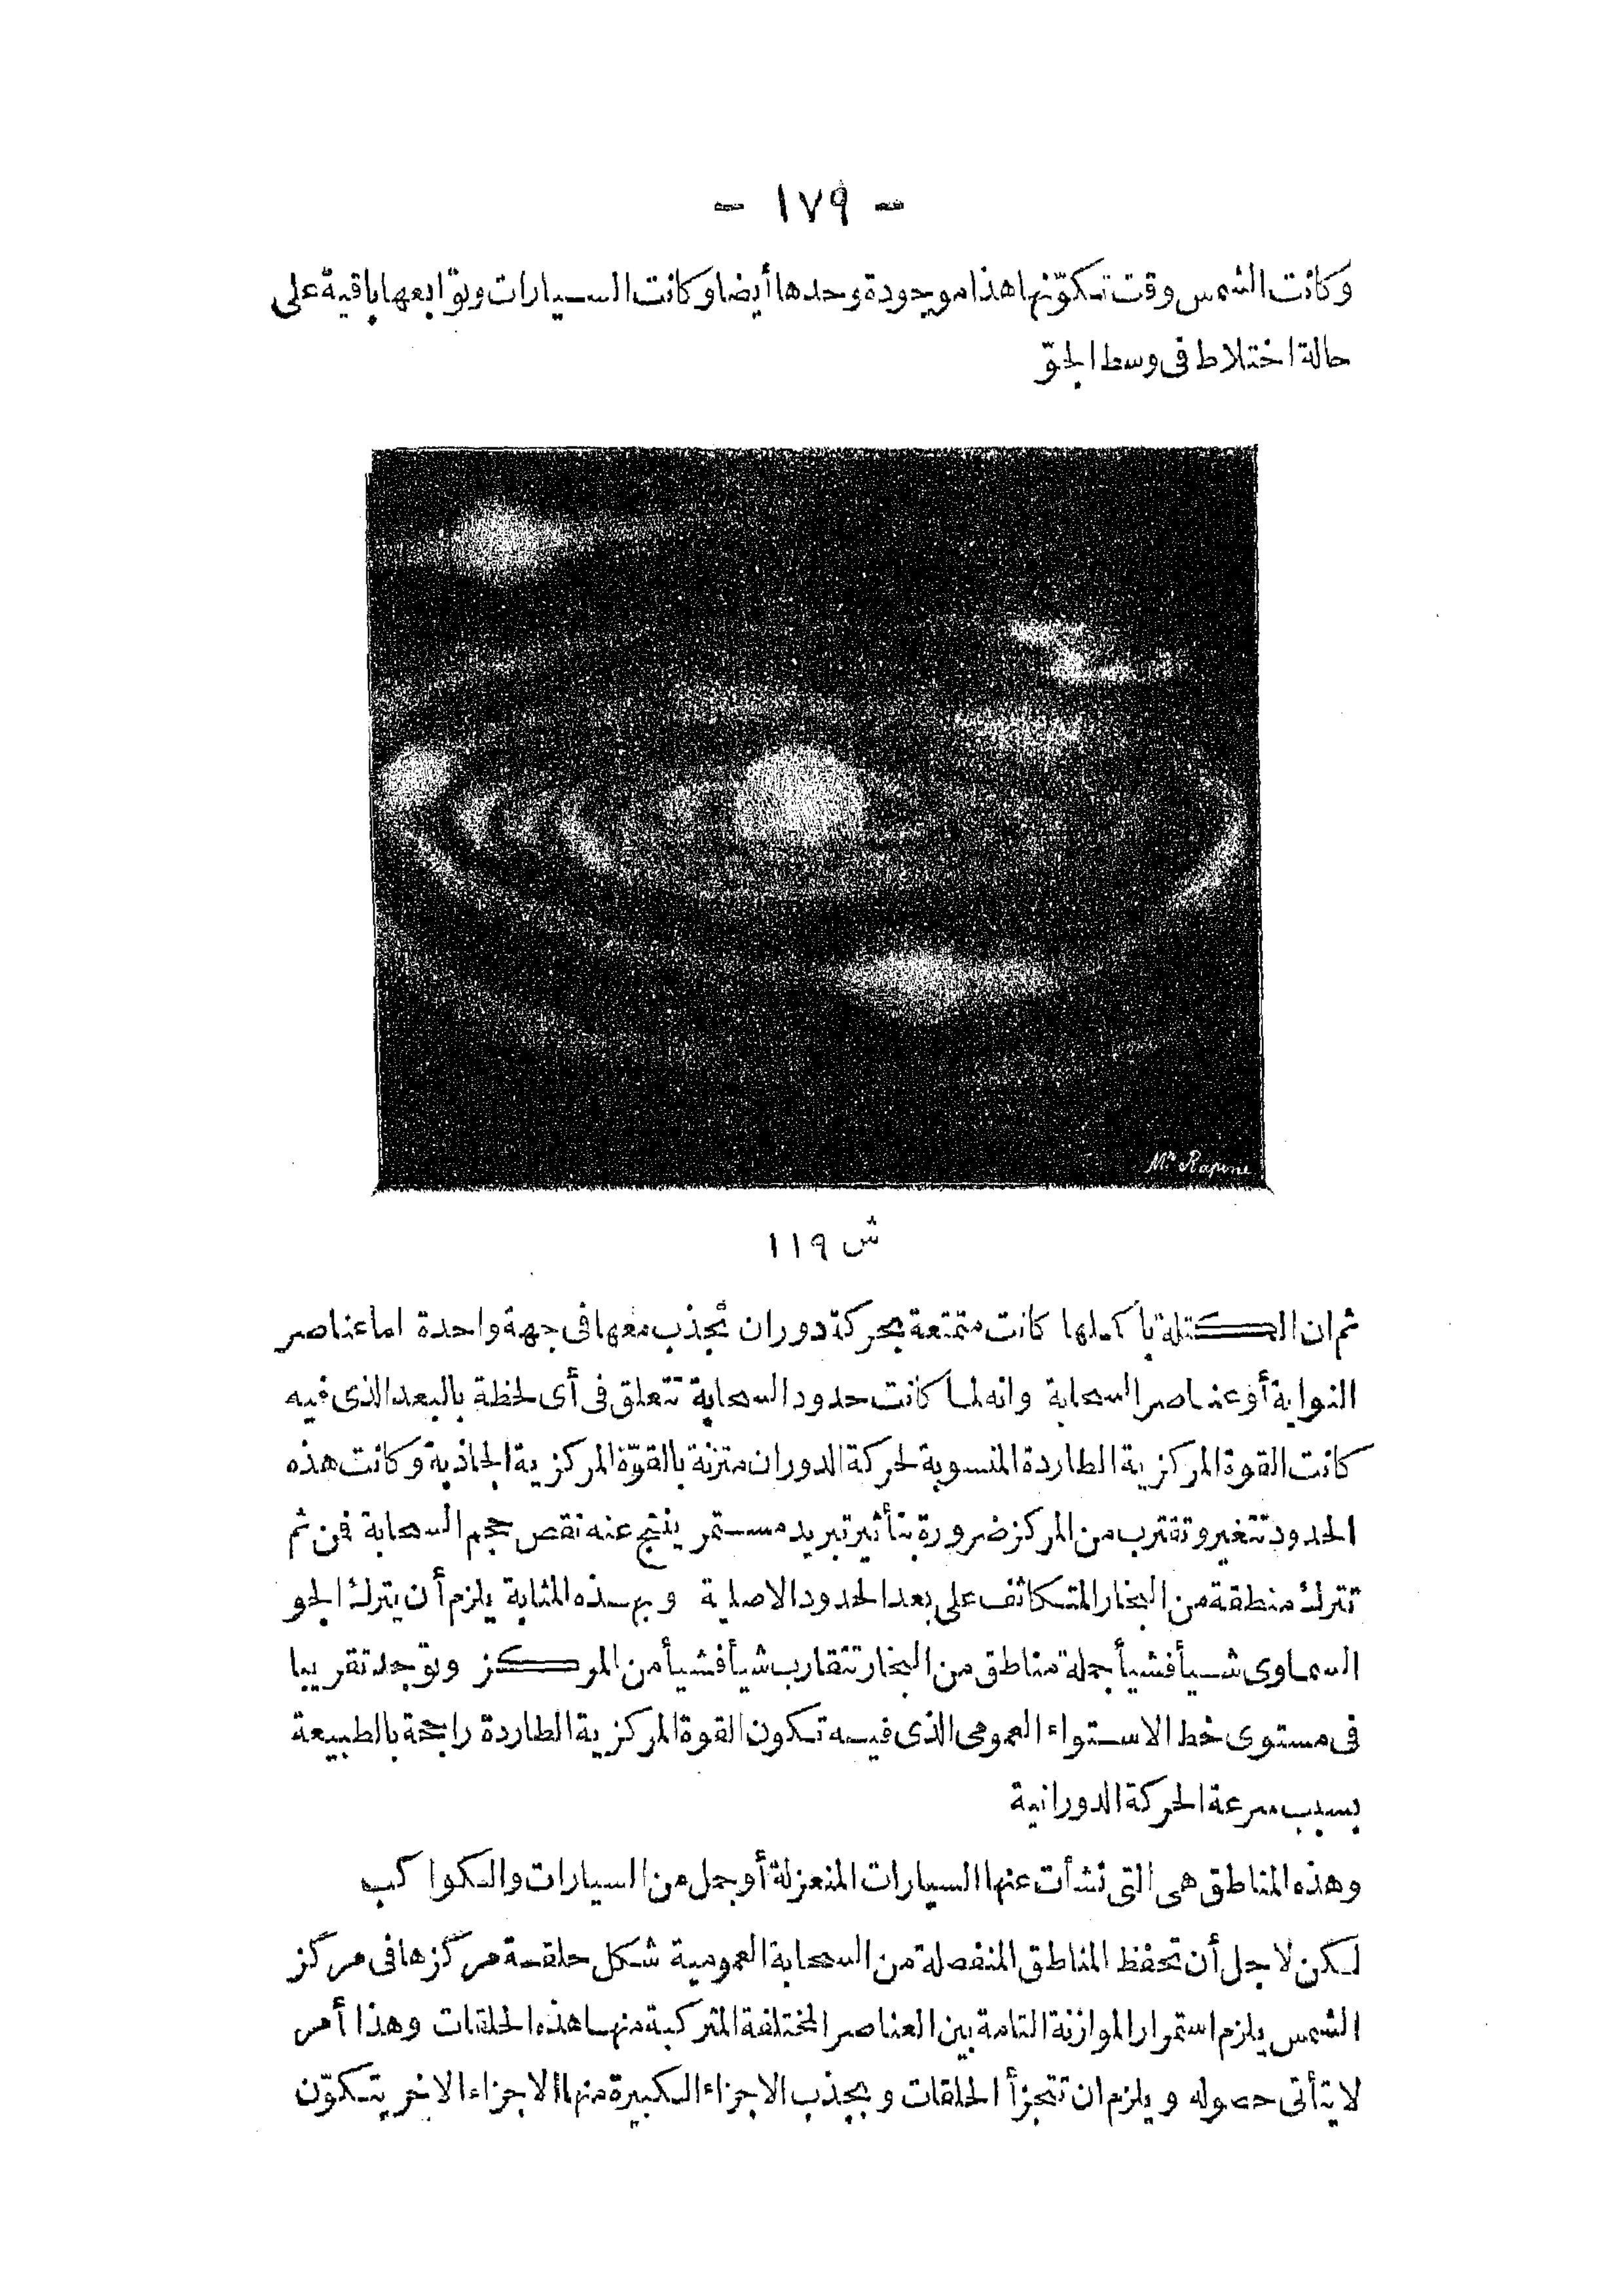 - ١٧٩ -
وكانت الشمس وقت تكوّنها هذا موجودة وحدها أيضا وكانت السيارات وتوابعها باقية على
حالة اختلاط فى وسط الجوّ
Mn Rapine
ش ١١٩
ثم ان الكتلة بأكملها كانت متمتعة بحركة دوران تجذب معها فى جهة واحدة اما عناصر
النواية أو عناصر السحابة وانه لما كانت حدود السحابة تتعلق فى أى لحظة بالبعد الذى فيه
كانت القوة المركزية الطاردة المنسوبة لحركة الدوران متزنة بالقوّة المركزية الجاذبة وكانت هذه
الحدود تتغير وتقترب من المركز ضرورة بتأثير تبريد مستمر ينتج عنه نقص حجم السحابة فمن ثم
تترك منطقة من البخار المتكاثف على بعد الحدود الاصلية وبهذه المثابة يلزم أن يترك الجو
السماوى شيأ فشيأ جملة مناطق من البخار تتقارب شيأ فشيأ من المركز وتوجد تقريبا
فى مستوى خط الاستواء العمومى الذى فيه تكون القوة المركزية الطاردة راجحة بالطبيعة
بسبب سرعة الحركة الدورانية
وهذه المناطق هى التى نشأت عنها السيارات المنعزلة أو جمل من السيارات والكواكب
لكن لاجل أن تحفظ المناطق المنفصلة من السحابة العمومية شكل حلقة مركزها فى مركز
الشمس يلزم استمرار الموازنة التامة بين العناصر المختلفة المتركبة منها هذه الحلقات وهذا أمر
لا يتأتى حصوله ويلزم ان تتجزأ الحلقات وبجذب الاجزاء الكبيرة منها الاجزاء الاخر يتكوّن